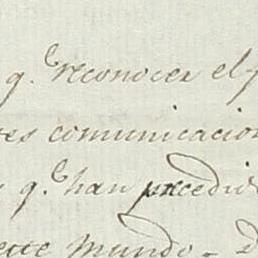 q.ᵉ reconocer el
comunicacion
q.ᵉ han precedid
este mundo. D